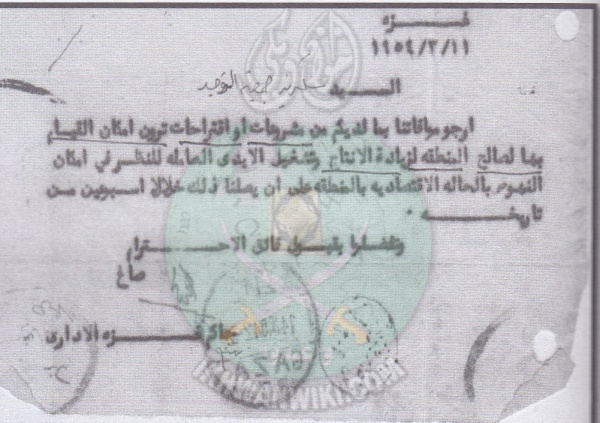 غــزه
١٩٥٤/٣/١١
السيد سكرتير جمعية التوحيد
ارجو موافاتنا بما لديكم من مشروعات أو اقتراحات ترون امكان القيام
بها لصالح المنطقه لزيادة الانتاج وتشغيل الايدى العامله للنظر في امكان
النهوض بالحاله الاقتصاديه بالمنطقه على ان يصلنا ذلك خلال اسبوعين من
تاريخــه .
وتفضلوا بقبول فائق الاحترام
صاغ
حاكم غــزه الادارى
IKHWANWIKI.COM